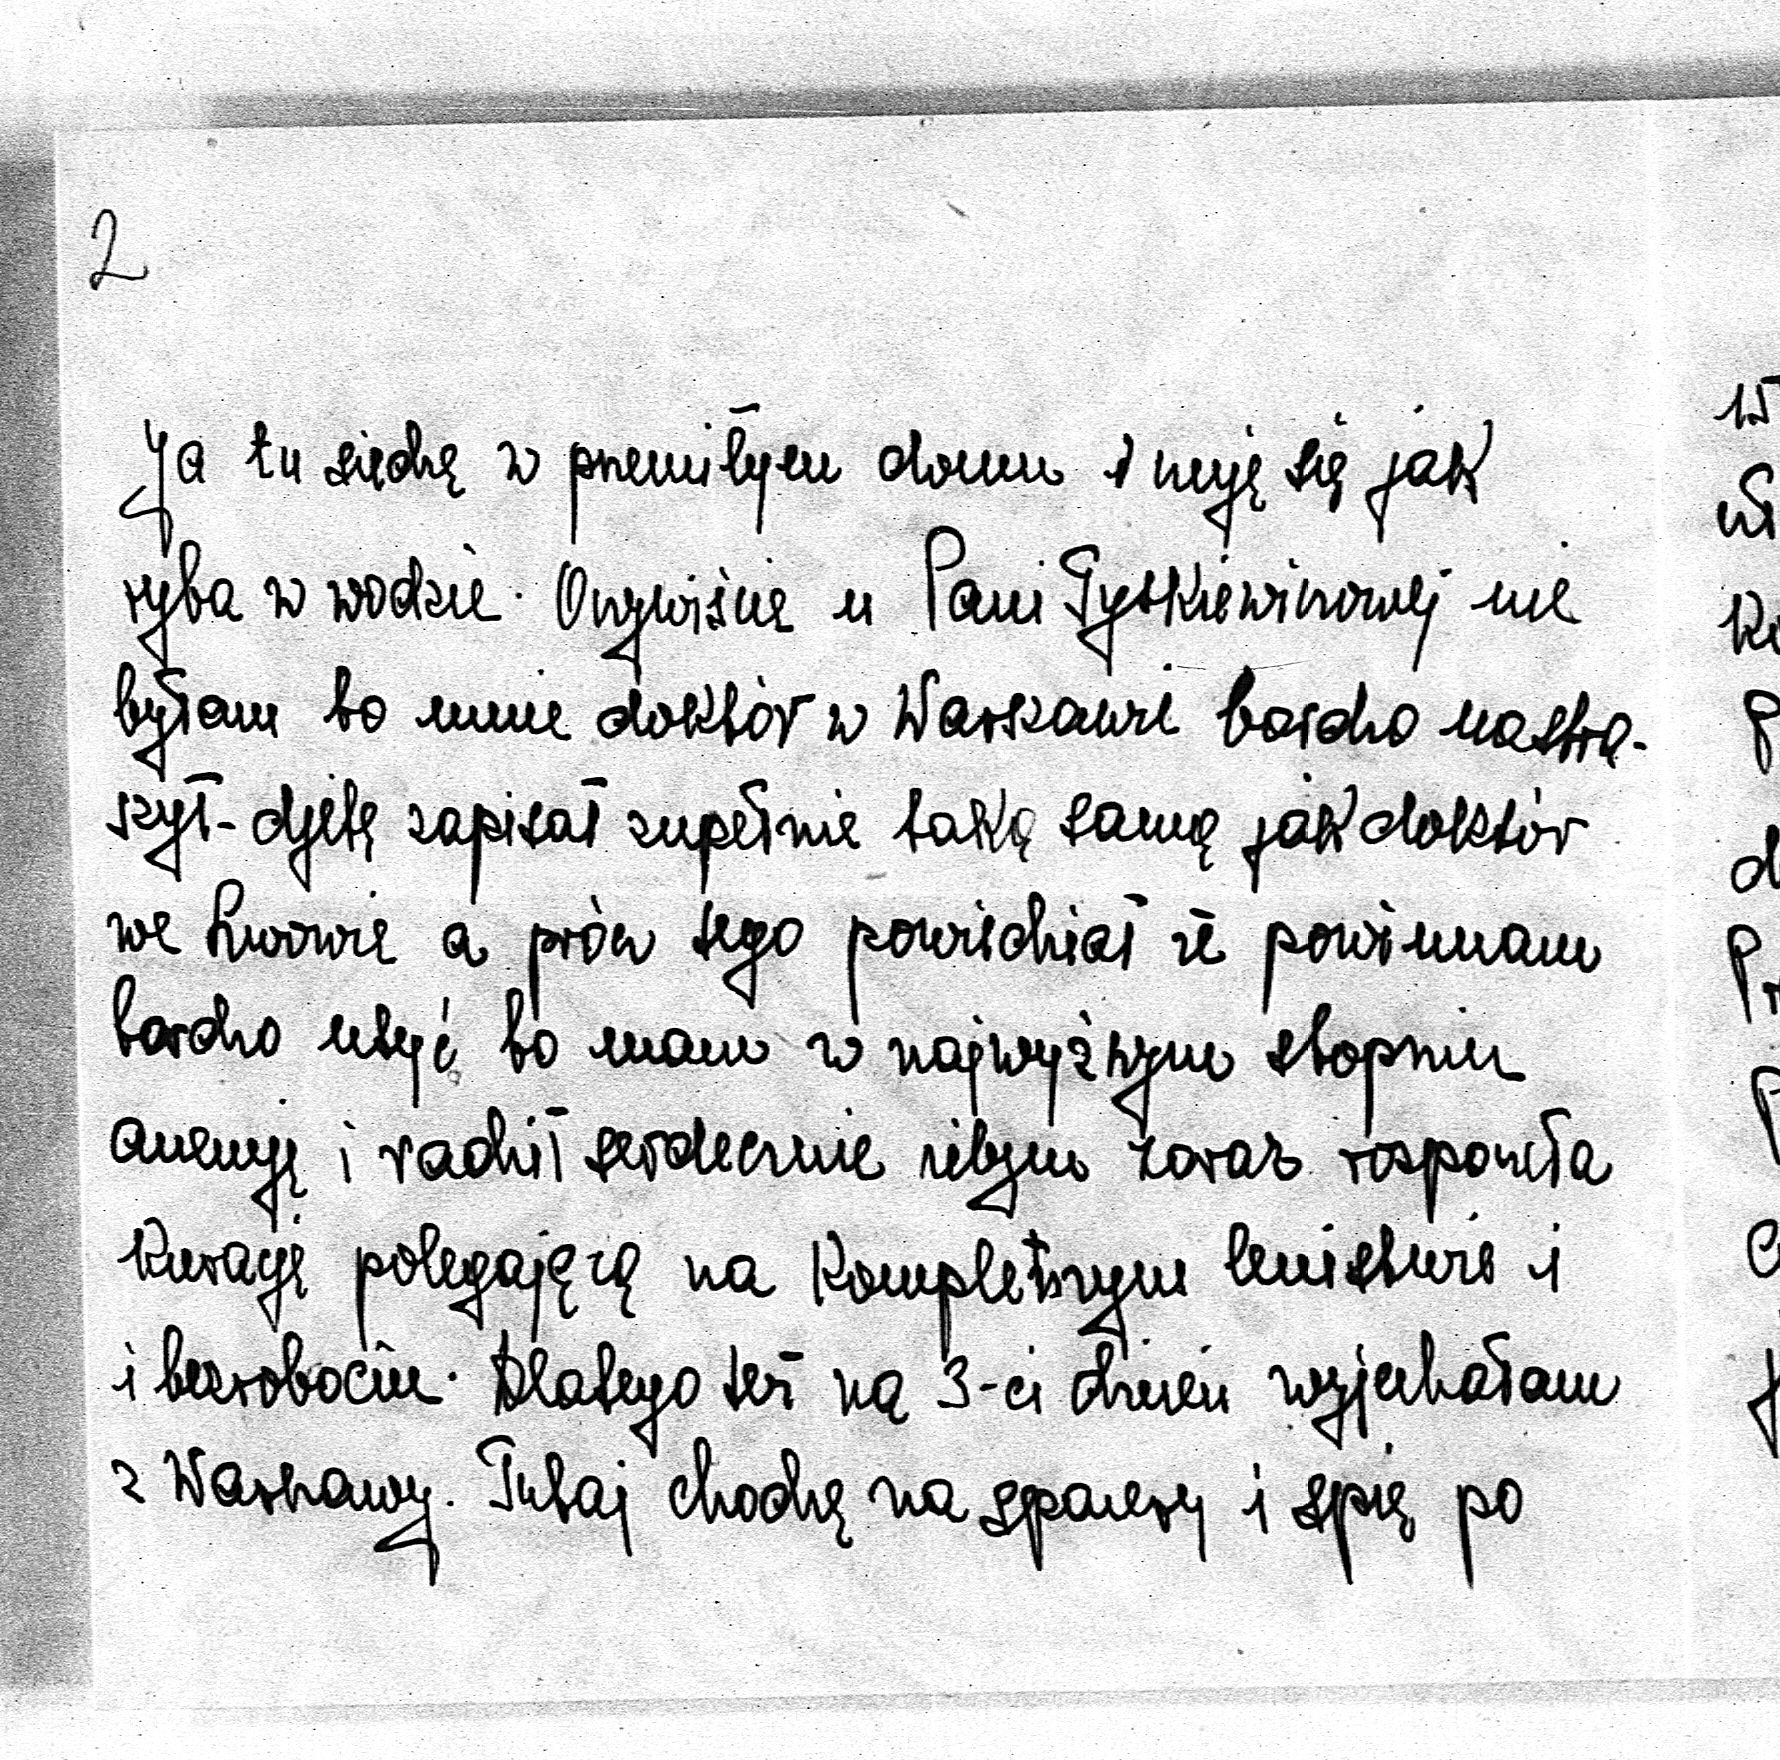 2
Ja tu siedzę w przemiłym domu i czuję się jak
ryba w wodzie. Oczywiście u Pani Tyszkiewiczowej nie
byłam bo mnie doktór w Warszawie bardzo nastra-
szył - djetę zapisał zupełnie taką samą jak doktór
we Lwowie a prócz tego powiedział że powinnam
bardzo utyć bo mam w najwyższym stopniu
anemję i radził serdecznie żebym zaraz rozpoczęła
kurację polegającą na kompletnym lenistwie i
i bezrobociu. Dlatego też na 3-ci dzień wyjechałam
z Warszawy. Tutaj chodzę na spacery i śpię po